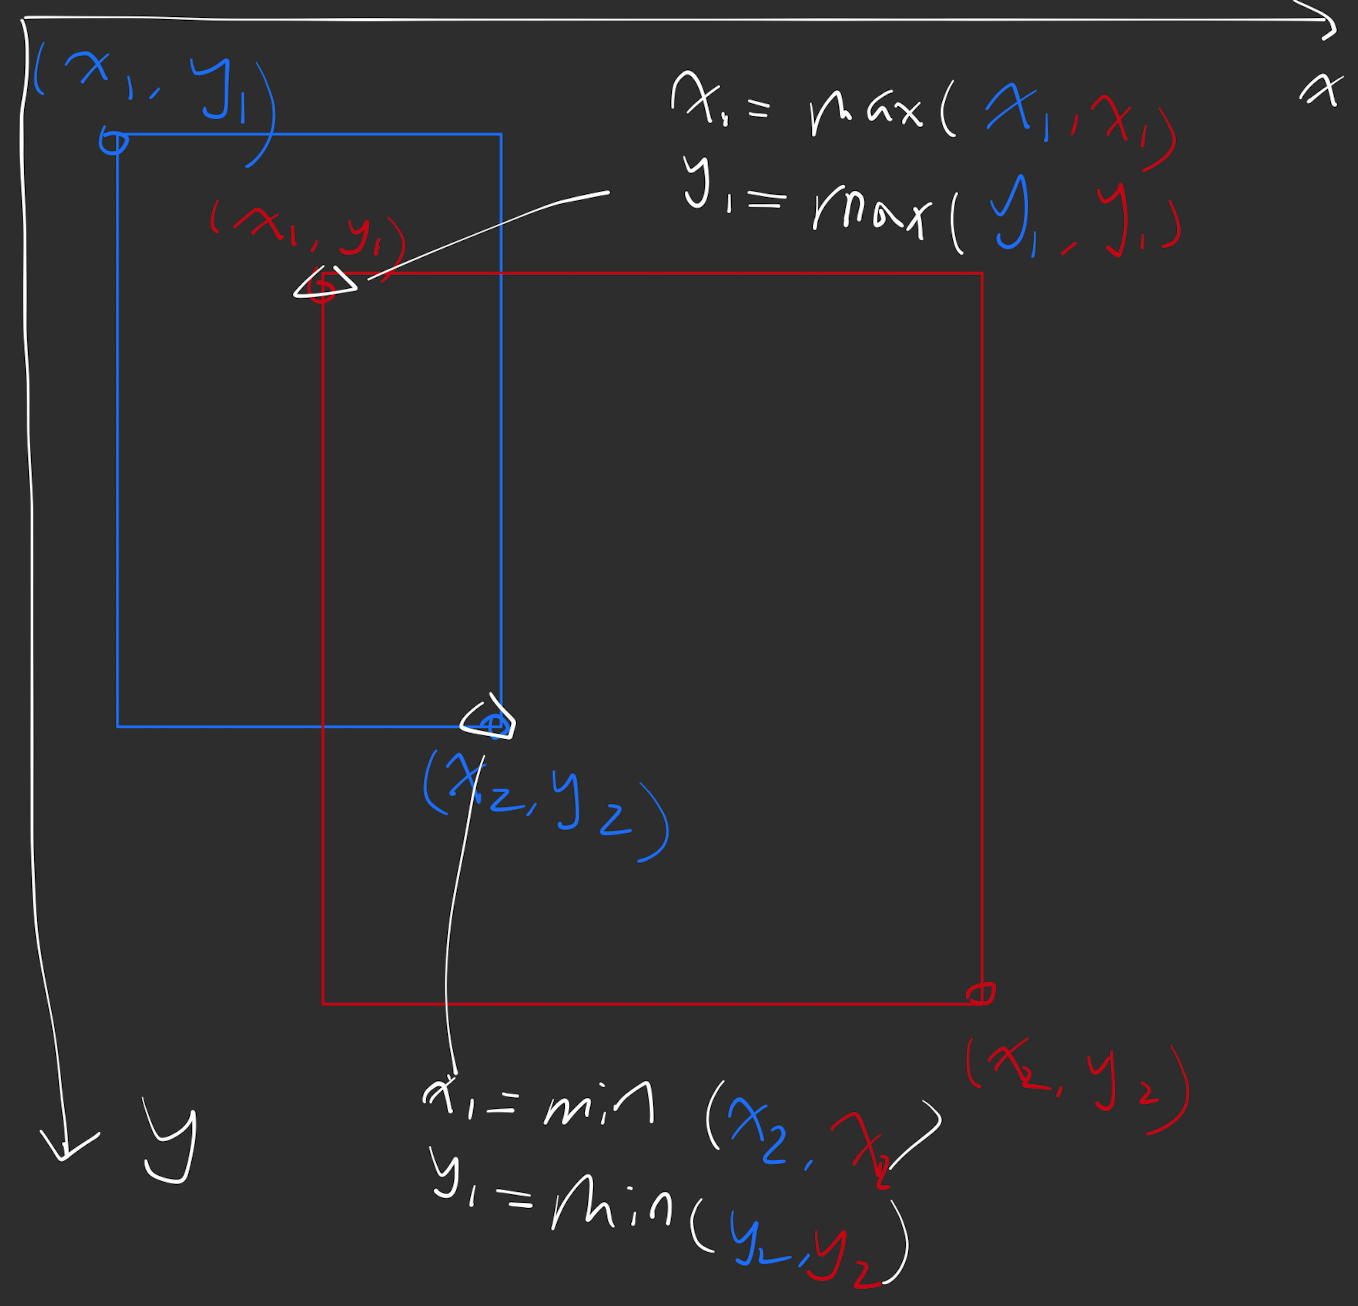 (x₁, y₁)
x
x₁ = max(x₁, x₁)
y₁ = max(y₁, y₁)
(x₁, y₁)
(x₂, y₂)
(x₂, y₂)
x₁ = min (x₂, x₂)
y₁ = min(y₂, y₂)
y